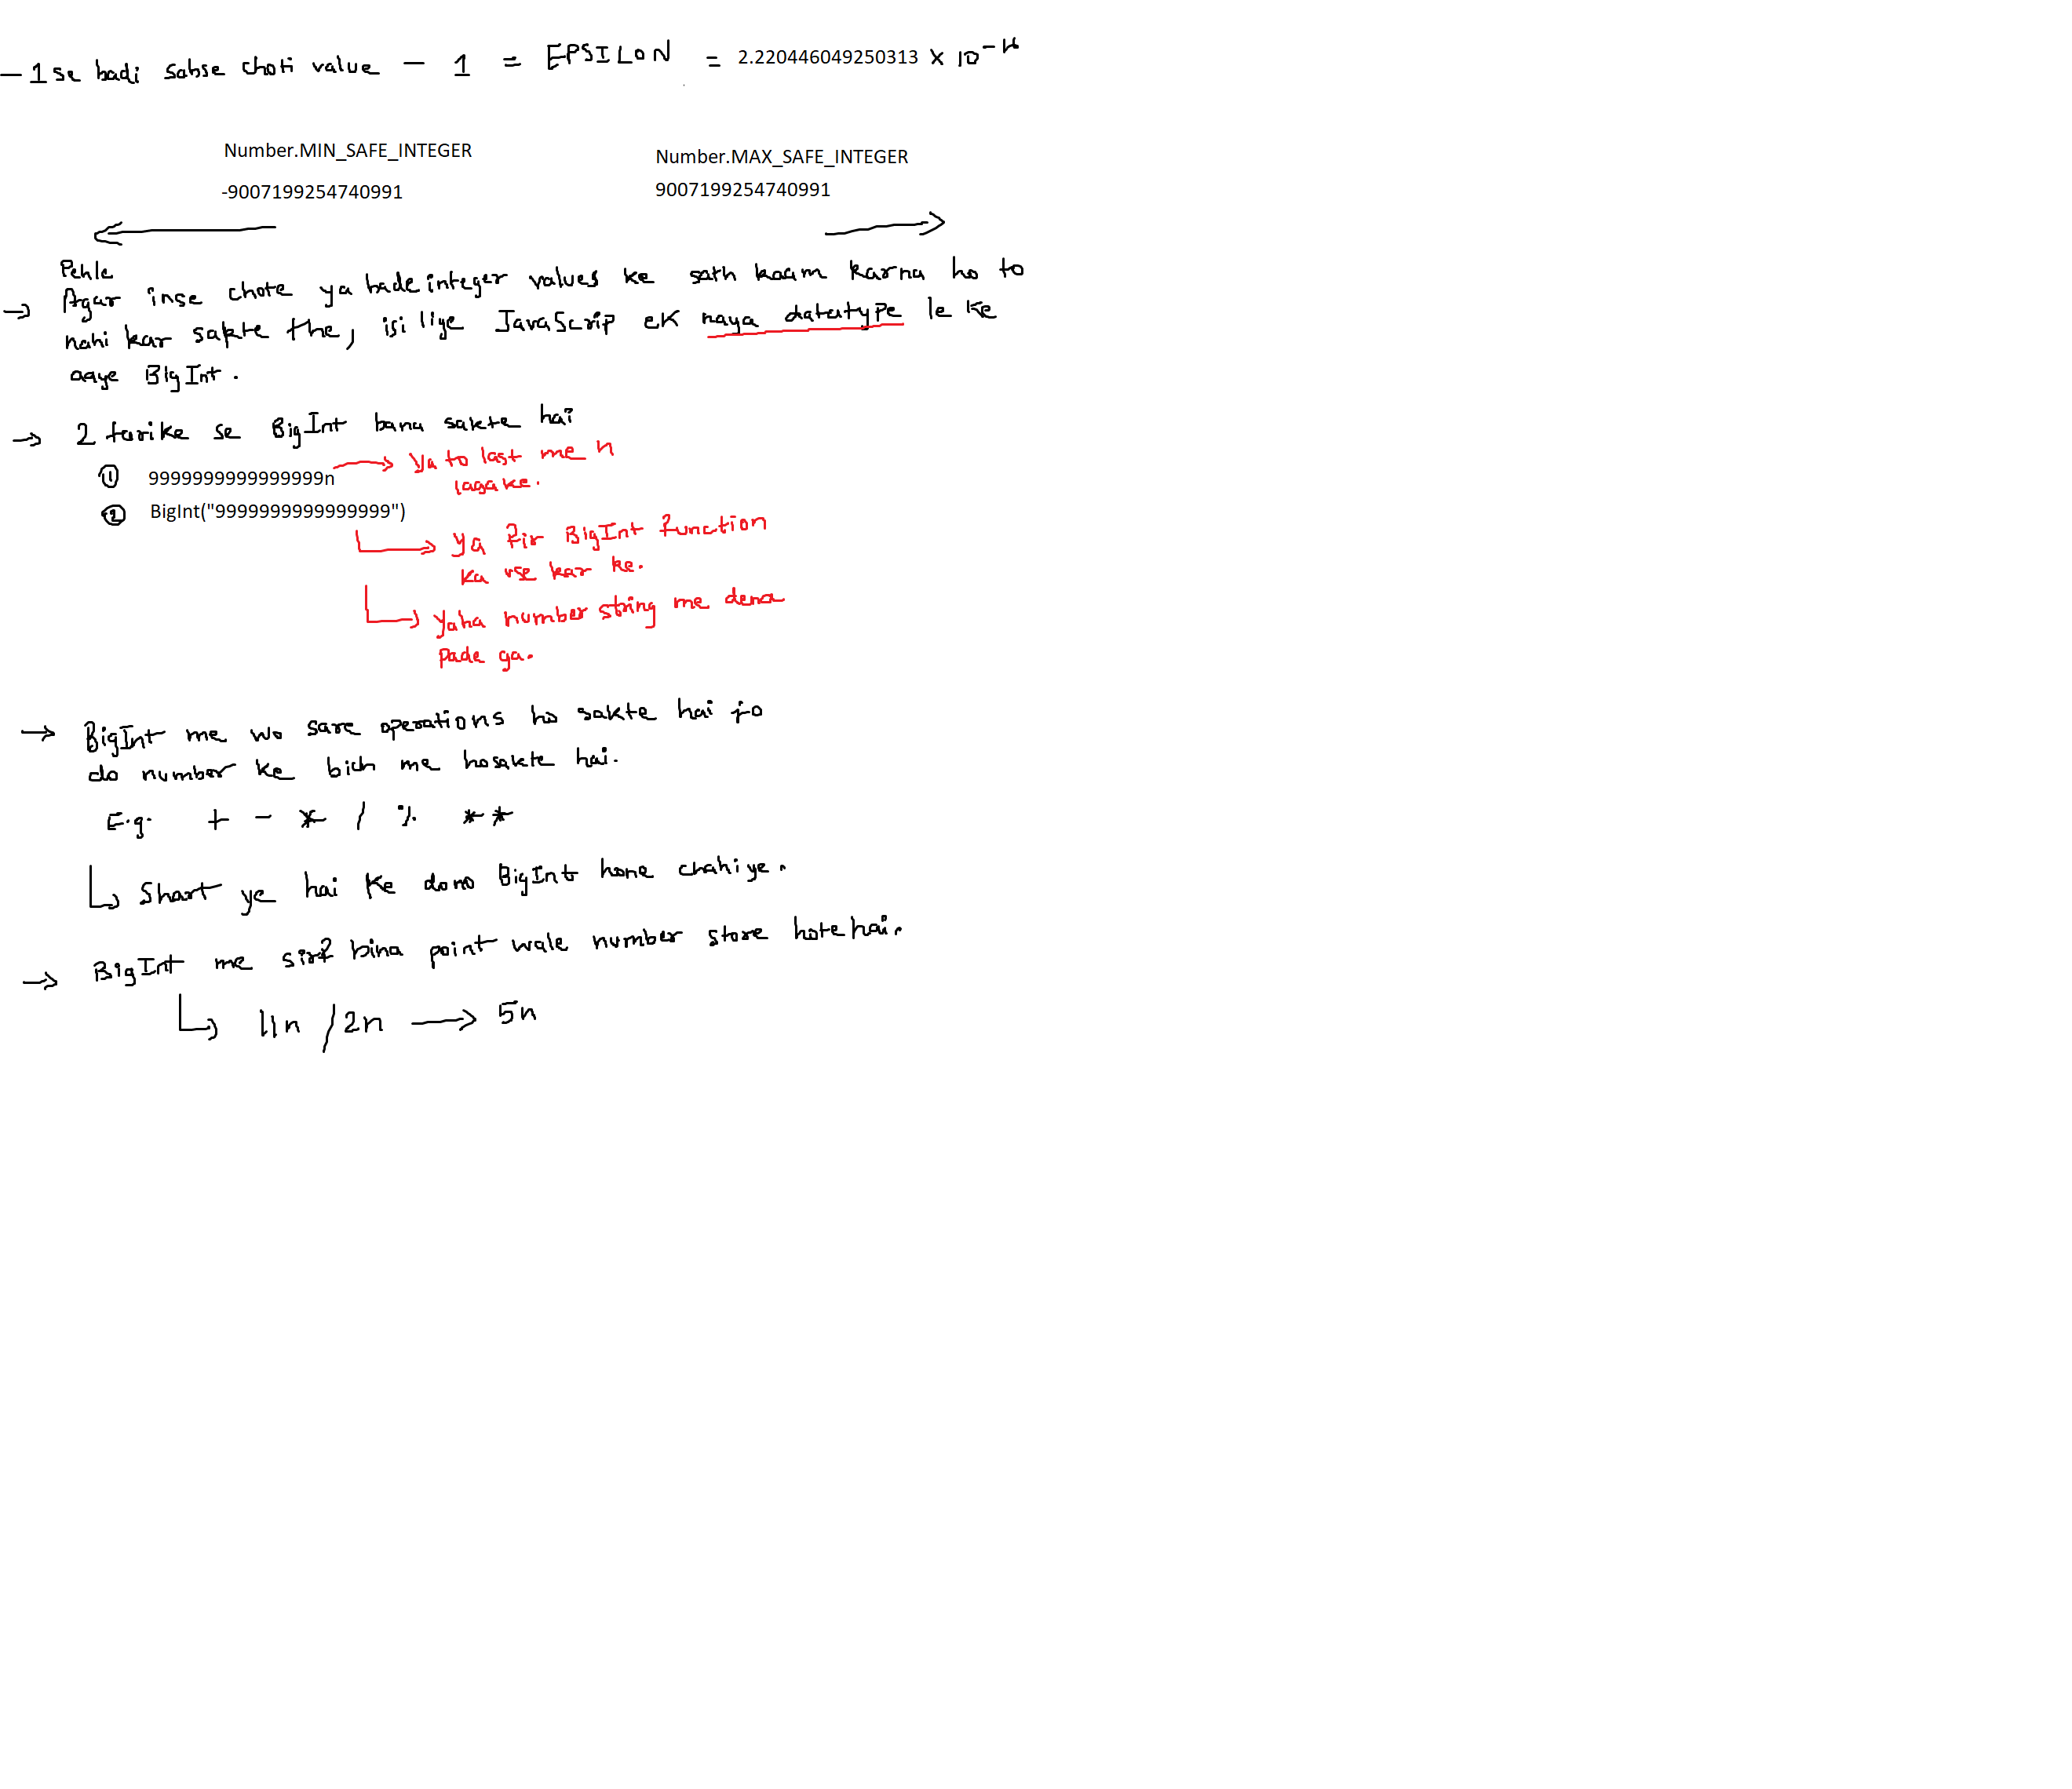 - 1 se badi sabse choti value - 1 = EPSILON = 2.220446049250313 × 10^-16
Number.MIN_SAFE_INTEGER Number.MAX_SAFE_INTEGER
-9007199254740991 9007199254740991
Pehle
→ Agar inse chote ya bade integer values ke sath kaam karna ho to
nahi kar sakte the, isi liye JavaScrip ek naya datatype le ke
aaye BigInt.
→ 2 tarike se BigInt bana sakte hai
① 9999999999999999n → Ya to last me n
lagake.
② BigInt("9999999999999999")
→ Ya fir BigInt function
ka use kar ke.
→ Yaha number string me dena
pade ga.
→ BigInt me wo sare operations ho sakte hai jo
do number ke bich me hosakte hai.
E.g. + - * / % **
↳ Shart ye hai ke dono BigInt hone chahiye.
→ BigInt me sirf bina point wale number store hote hai.
↳ 11n / 2n → 5n